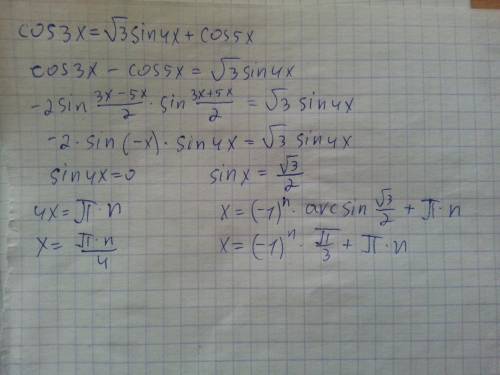 cos3x = √3 sin4x + cos5x
cos3x - cos5x = √3 sin4x
-2sin (3x-5x)/2 · sin (3x+5x)/2 = √3 sin4x
-2 · sin(-x) · sin4x = √3 sin4x
sin4x = 0    sinx = √3/2
4x = π·n    x = (-1)ⁿ · arcsin √3/2 + π·n
x = π·n/4    x = (-1)ⁿ · π/3 + π·n